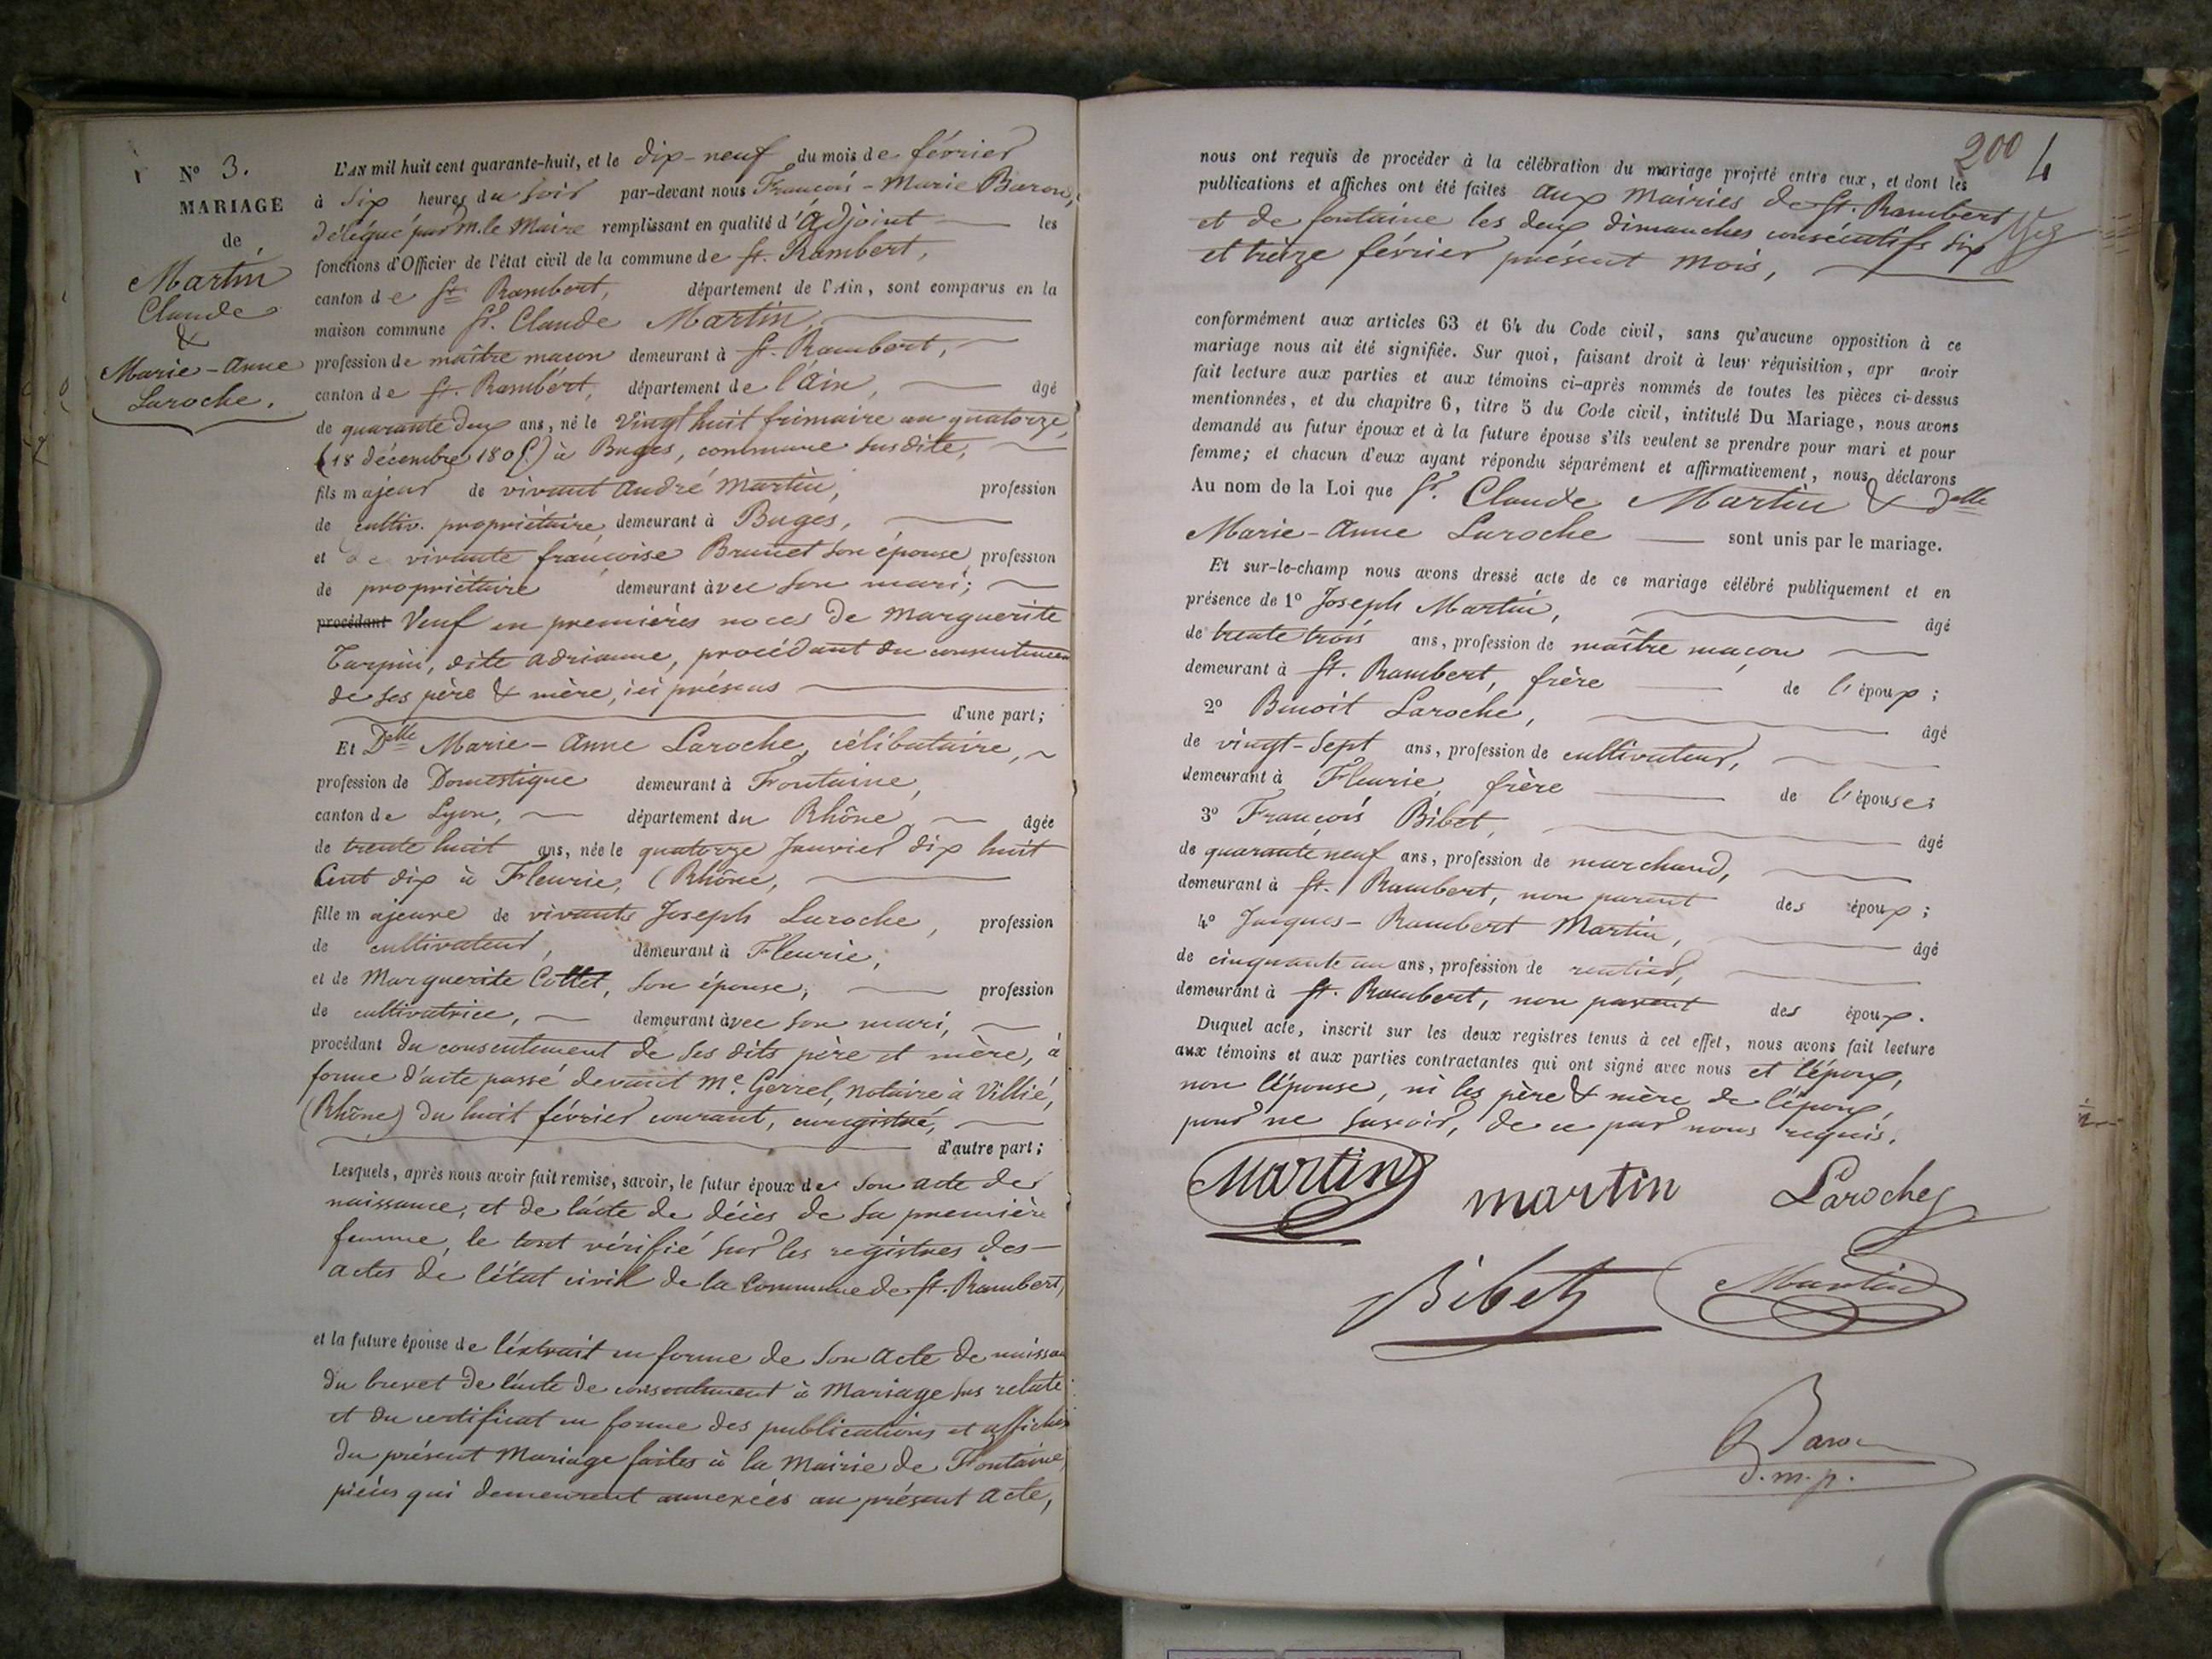 N° 3.
MARIAGE
de
Martin
Claude
&
Marie-Anne
Laroche.
L'AN mil huit cent quarante-huit, et le dix-neuf du mois de février
à Six heures du soir par-devant nous François-Marie Baron,
délégué par M. le Maire remplissant en qualité d'Adjoint les
fonctions d'Officier de l'état civil de la commune de St. Rambert,
canton de St Rambert, département de l'Ain, sont comparus en la
maison commune Sr. Claude Martin,
profession de maître maçon demeurant à St. Rambert,
canton de St. Rambert, département de l'Ain, âgé
de quarante deux ans, né le vingt huit frimaire an quatorze,
(18 décembre 1805) à Buges, commune susdite,
fils majeur de vivant André Martin, profession
de cultiv. propriétaire demeurant à Buges,
et de vivante françoise Brunet son épouse, profession
de propriétaire demeurant avec son mari;
procédant Veuf en premières noces de Marguerite
Tarpin, dite Adrianne, procédant du consentement
de ses père & mère, ici présens
d'une part;
Et Delle Marie-Anne Laroche, célibataire,
profession de Domestique demeurant à Fontaine,
canton de Lyon, département du Rhône, âgée
de trente huit ans, née le quatorze Janvier dix huit
Cent dix à Fleurie, (Rhône,
fille majeure de vivants Joseph Laroche, profession
de cultivateur, demeurant à Fleurie,
et de Marguerite Cottet, son épouse, profession
de cultivatrice, demeurant avec son mari,
procédant du consentement de ses dits père et mère, à
forme d'acte passé devant Me. Gerrel, notaire à Villié,
(Rhône) du huit février courant, enregistré,
d'autre part;
Lesquels, après nous avoir fait remise, savoir, le futur époux de son acte de
naissance, et de l'acte de décès de sa première
femme, le tout vérifié sur les registres des
actes de l'état civil de la Commune de St. Rambert,
et la future épouse de l'extrait en forme de son acte de naissan
du brevet de l'acte de consentement à Mariage sus relaté
et du certificat en forme des publications et affiches
du présent Mariage faites à la Mairie de Fontaine,
pièces qui demeurent annexées au présent acte,
200 4
nous ont requis de procéder à la célébration du mariage projeté entre eux, et dont les
publications et affiches ont été faites aux Mairies de St. Rambert
et de fontaine les deux dimanches consécutifs six
et treize février présent mois,
conformément aux articles 63 et 64 du Code civil, sans qu'aucune opposition à ce
mariage nous ait été signifiée. Sur quoi, faisant droit à leur réquisition, apr avoir
fait lecture aux parties et aux témoins ci-après nommés de toutes les pièces ci-dessus
mentionnées, et du chapitre 6, titre 5 du Code civil, intitulé Du Mariage, nous avons
demandé au futur époux et à la future épouse s'ils veulent se prendre pour mari et pour
femme; et chacun d'eux ayant répondu séparément et affirmativement, nous déclarons
Au nom de la Loi que Sr. Claude Martin & Delle
Marie-Anne Laroche sont unis par le mariage.
Et sur-le-champ nous avons dressé acte de ce mariage célébré publiquement et en
présence de 1° Joseph Martin, âgé
de trente trois ans, profession de maître maçon
demeurant à St. Rambert, frère de l'époux;
2° Benoit Laroche, âgé
de vingt-sept ans, profession de cultivateur,
demeurant à Fleurie, frère de l'épouse;
3° François Bibet, âgé
de quarante neuf ans, profession de marchand,
demeurant à St. Rambert, non parent des époux;
4° Jacques-Rambert Martin, âgé
de cinquante un ans, profession de rentier,
demeurant à St. Rambert, non parent des époux.
Duquel acte, inscrit sur les deux registres tenus à cet effet, nous avons fait lecture
aux témoins et aux parties contractantes qui ont signé avec nous et l'époux,
non l'épouse, ni les père & mère de l'époux,
pour ne savoir, de ce par nous requis.
Martin martin Laroche
Bibet Martin
Baron
d.m.p.